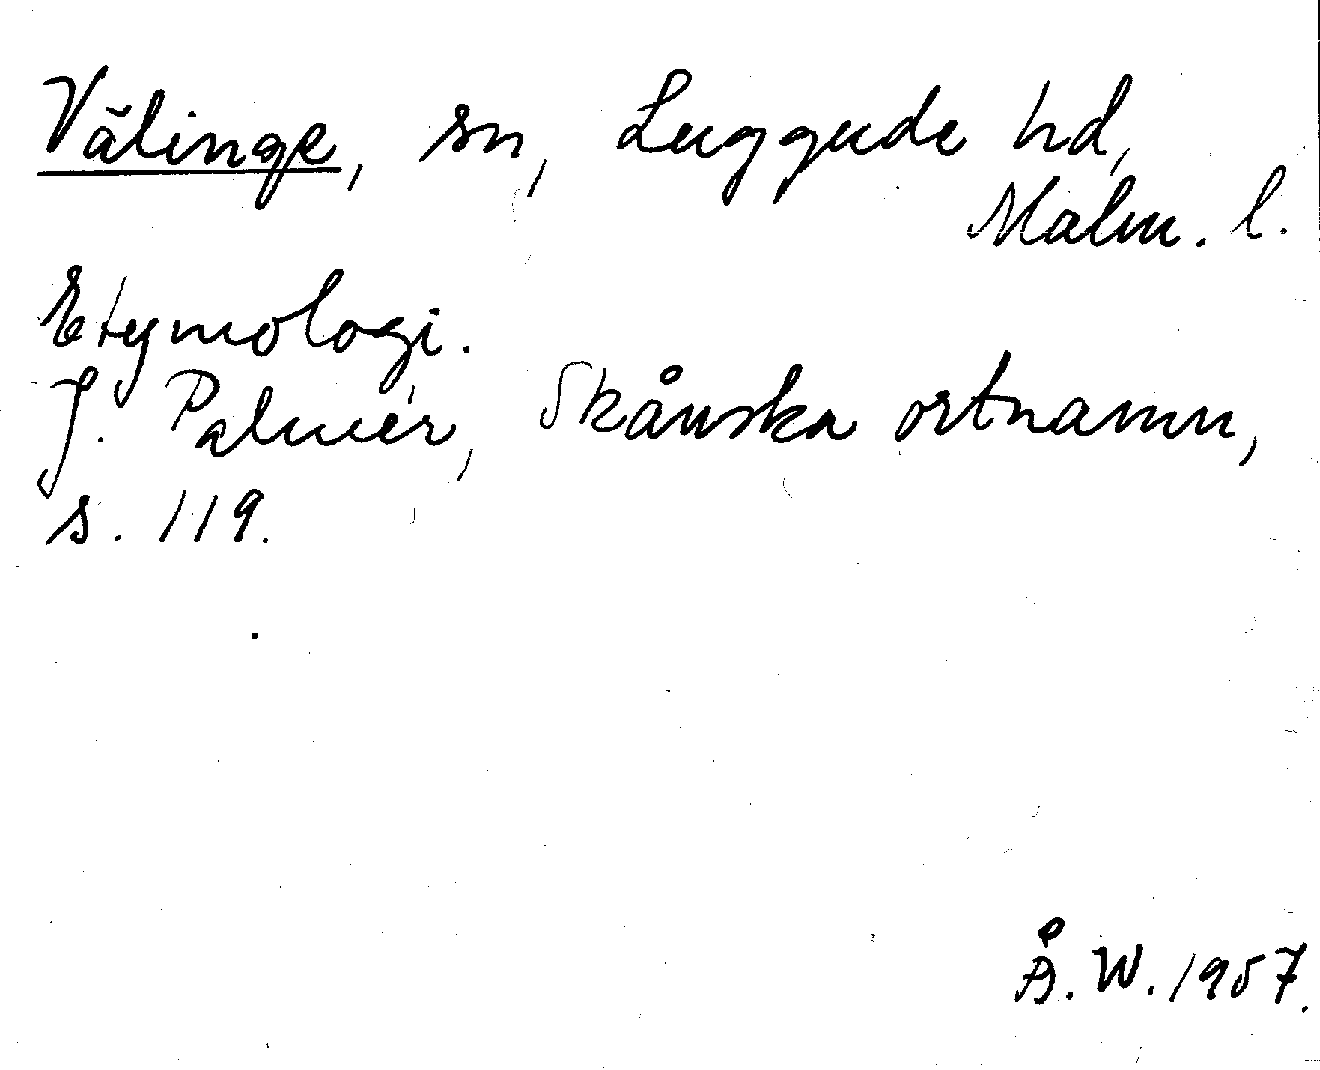 Välinge, sn, Luggude hd,
Malm. l.
Etymologi.
J. Palmér, Skånska ortnamn,
s. 119.
Å. W. 1957.